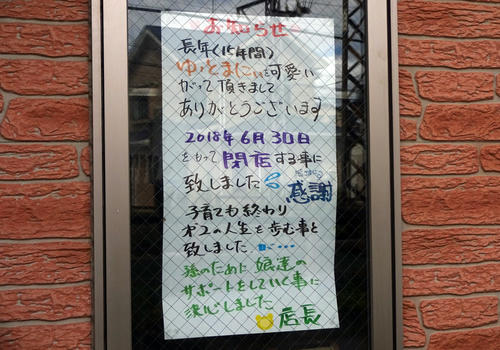 お知らせ
長年(15年間)
ゆぅとまにぃを可愛い
がって頂きまして
ありがとうございます
2018年6月30日
をもって閉店する事に
致しました
感謝
子育ても終わり
オ2の人生を歩む事と
致しました
孫のために娘達の
サポートをしていく事に
決心しました
店長